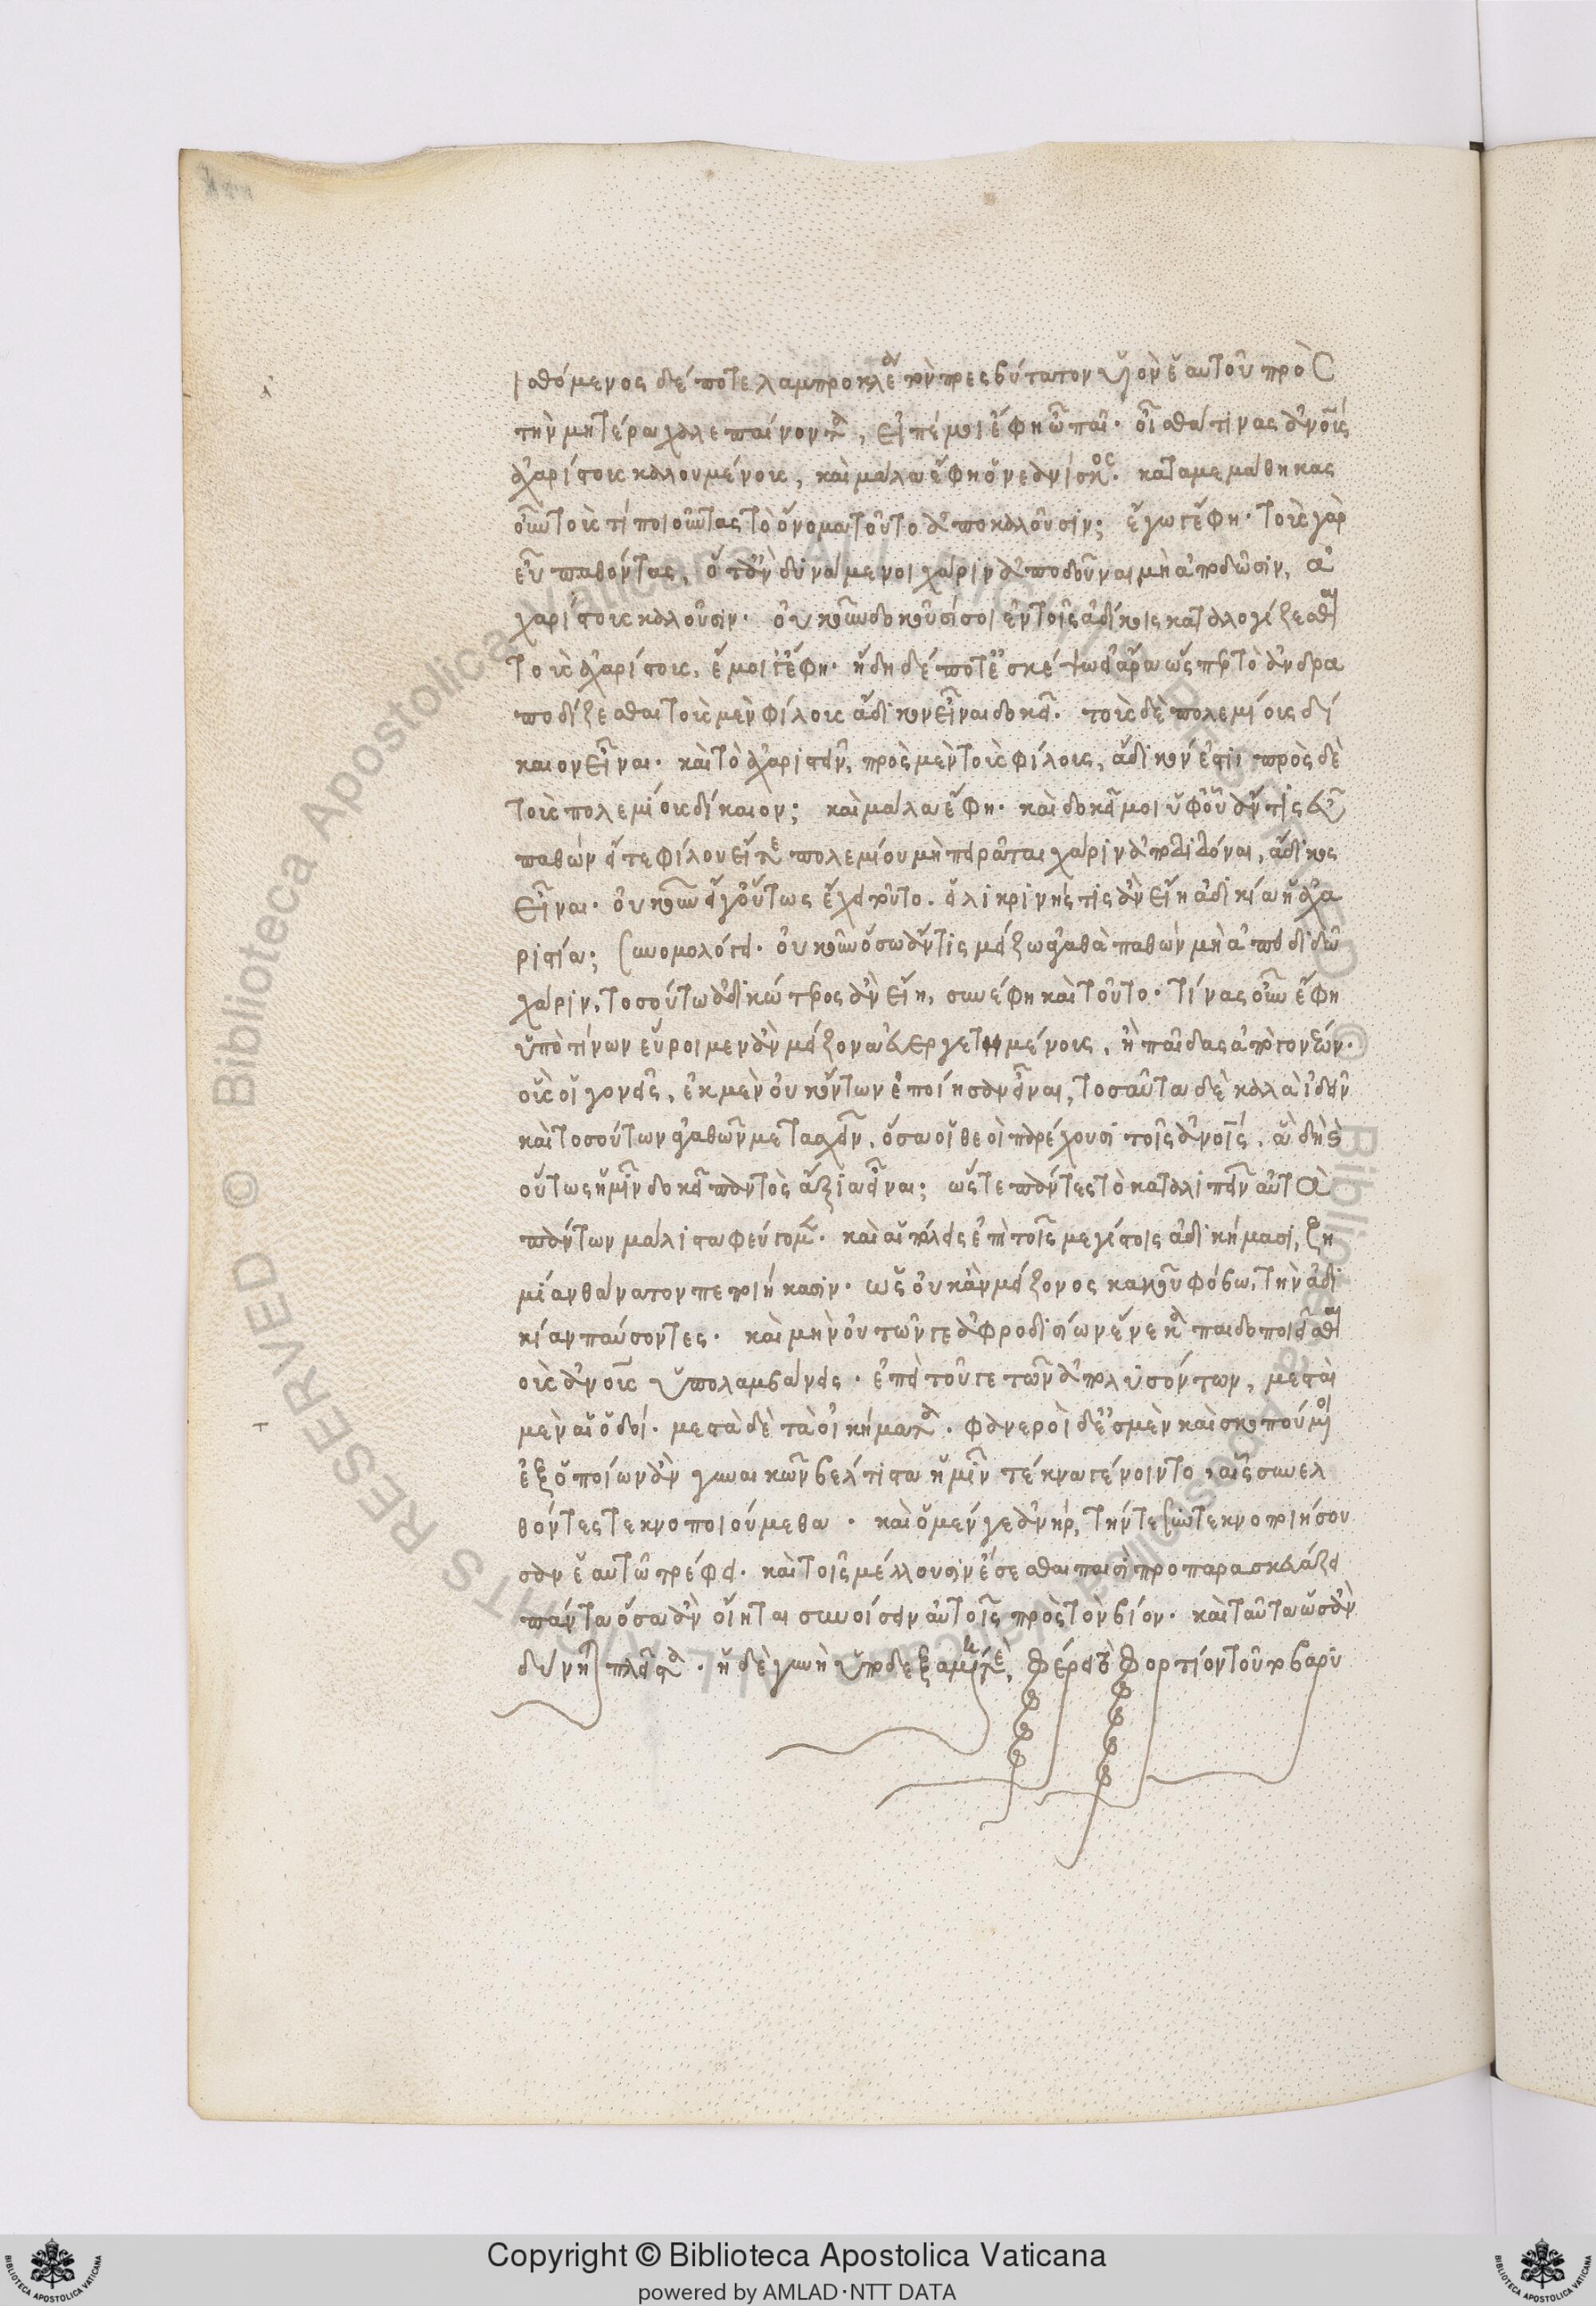 ισθόμενος δέ ποτε λαμπροκλέα τὸν πρεσβύτατον υἱὸν ἑαυτοῦ πρὸς
τὴν μητέρα χαλεπαίνοντα, εἰπέ μοι ἔφη ὦ παῖ. οἶσθά τινας ἀνους
ἀχαρίστους καλουμένους, καὶ μάλα ἔφη ὁ νεανίσκος. καταμεμάθηκας
οὖν τοὺς τί ποιοῦντας τὸ ὄνομα τοῦτο ἀποκαλοῦσιν; ἔγωγ' ἔφη. τοὺς γὰρ
εὖ παθόντας, ὅταν δυνάμενοι χάριν ἀποδοῦναι μὴ ἀποδῶσιν, ἀ
χαρίστους καλοῦσιν. οὐκοῦν δοκοῦσί σοι ἐν τοῖς ἀδίκοις καταλογίζεσθαι
τοὺς ἀχαρίστους, ἔμοιγ' ἔφη. ἤδη δέ ποτ' ἐσκέψω ἄρα ὥσπερ τὸ ἀνδρα
ποδίζεσθαι τοὺς μὲν φίλους ἄδικον εἶναι δοκεῖ. τοὺς δὲ πολεμίους δί
καιον εἶναι. καὶ τὸ ἀχαριστεῖν, πρὸς μὲν τοὺς φίλους, ἄδικόν ἐστι πρὸς δὲ
τοὺς πολεμίους δίκαιον; καὶ μάλα ἔφη. καὶ δοκεῖ μοι ὑφ' οὗ ἄν τις εὖ
παθὼν εἴτε φίλου εἴτε πολεμίου μὴ πειρᾶται χάριν ἀποδιδόναι, ἄδικος
εἶναι. οὐκοῦν εἴ γ' οὕτως ἔχει τοῦτο. εἰλικρινής τις ἂν εἴη ἀδικία ἡ ἀχα
ριστία; συνομολόγει. οὐκοῦν ὅσω ἄν τις μείζω ἀγαθὰ παθὼν μὴ ἀποδιδῶ
χάριν, τοσούτω ἀδικώτερος ἂν εἴη, συνέφη καὶ τοῦτο. τίνας οὖν ἔφη
ὑπὸ τίνων εὕροιμεν ἂν μείζονα εὐεργετημένους, ἢ παῖδας ὑπὸ γονέων.
οὓς οἱ γονεῖς, ἐκ μὲν οὐκ ὄντων ἐποίησαν εἶναι, τοσαῦτα δὲ καλὰ ἰδεῖν
καὶ τοσούτων ἀγαθῶν μετασχεῖν, ὅσα οἱ θεοὶ παρέχουσι τοῖς ἀνοις, ἃ δὴ καὶ
οὕτως ἡμῖν δοκεῖ παντὸς ἄξια εἶναι; ὥστε πάντες τὸ καταλιπεῖν αὐτὰ
πάντων μάλιστα φεύγομεν. καὶ αἱ πόλεις ἐπὶ τοῖς μεγίστοις ἀδικήμασι, ζη
μίαν θάνατον πεποιήκασιν. ὡς οὐκ ἂν μείζονος κακοῦ φόβω, τὴν ἀδι
κίαν παύσοντες. καὶ μὴν οὐ τῶν γε ἀφροδισίων ἕνεκα παιδοποιεῖσθαι
τοὺς ἀνους ὑπολαμβάνεις. ἐπεὶ τούτου γε τῶν ἀπολυσόντων, μεσταὶ
μὲν αἱ ὁδοί. μεστὰ δὲ τὰ οἰκήματα. φανεροὶ δ' ἐσμὲν καὶ σκοπούμενοι
ἐξ ὁποίων ἂν γυναικῶν βέλτιστα ἡμῖν τέκνα γένοιντο, αἷς συνελ
θόντες τεκνοποιούμεθα. καὶ ὁ μέν γε ἀνήρ, τήν τε συντεκνοποιήσου
σαν ἑαυτῶ τρέφει. καὶ τοῖς μέλλουσιν ἔσεσθαι παισὶ προπαρασκευάζει
πάντα ὅσα ἂν οἴηται συνοίσειν αὐτοῖς πρὸς τὸν βίον. καὶ ταῦτα ὡς ἂν
δύνηται πλεῖστα. ἡ δὲ γυνὴ ὑποδεξαμένη τε, φέρει τὸ φορτίον τοῦτο βαρυ